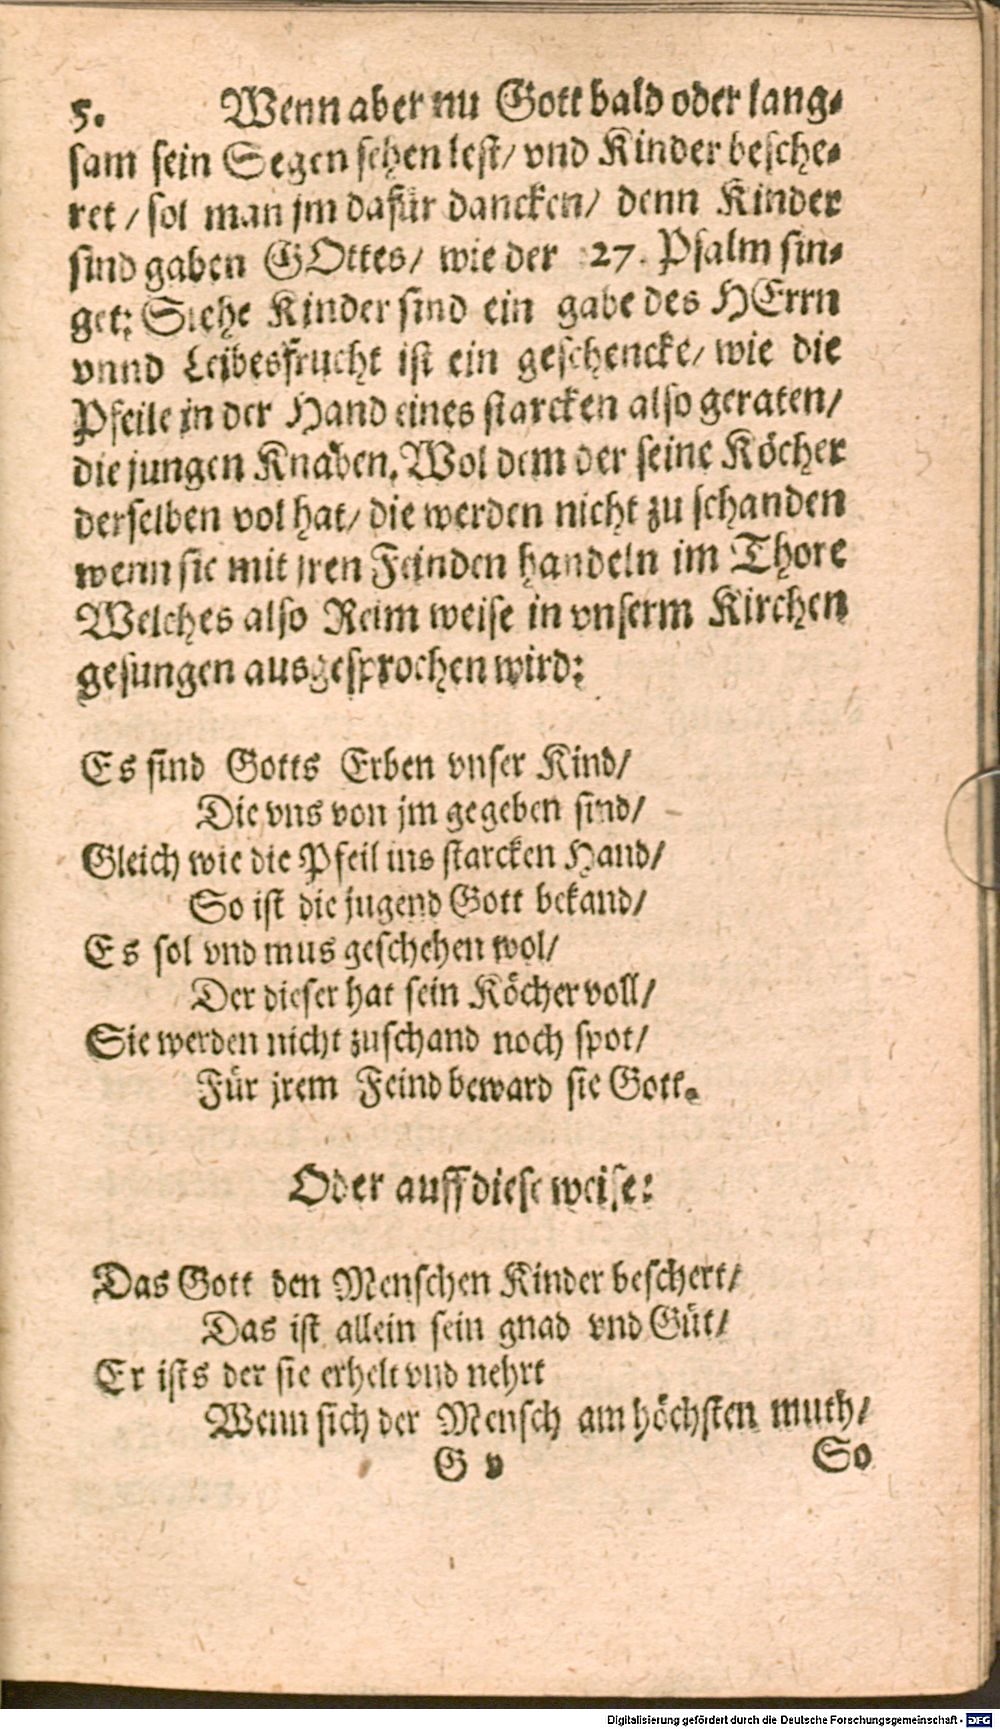 5. Wenn aber nu Gott bald oder lang⸗
sam sein Segen sehen lest/ vnd Kinder besche⸗
ret / sol man jm dafür dancken/ denn Kinder
sind gaben GOttes/ wie der 27. Psalm sin⸗
get: Siehe Kinder sind ein gabe des HErrn
vnnd Leibesfrucht ist ein geschencke/ wie die
Pfeile in der Hand eines starcken also geraten/
die jungen Knaben. Wol dem der seine Köcher
derselben vol hat/ die werden nicht zu schanden
wenn sie mit jren Feinden handeln im Thore
Welches also Reim weise in vnserm Kirchen
gesungen ausgesprochen wird:
Es sind Gotts Erben vnser Kind/
Die vns von jm gegeben sind/
Gleich wie die Pfeil ins starcken Hand/
So ist die jugend Gott bekand/
Es sol vnd mus geschehen wol/
Der dieser hat sein Köcher voll/
Sie werden nicht zuschand noch spot/
Für jrem Feind beward sie Gott.
Oder auff diese weise:
Das Gott den Menschen Kinder beschert/
Das ist allein sein gnad vnd Güt/
Er ists der sie erhelt vnd nehrt
Wenn sich der Mensch am höchsten muth/
G v So
Digitalisierung gefördert durch die Deutsche Forschungsgemeinschaft - DFG